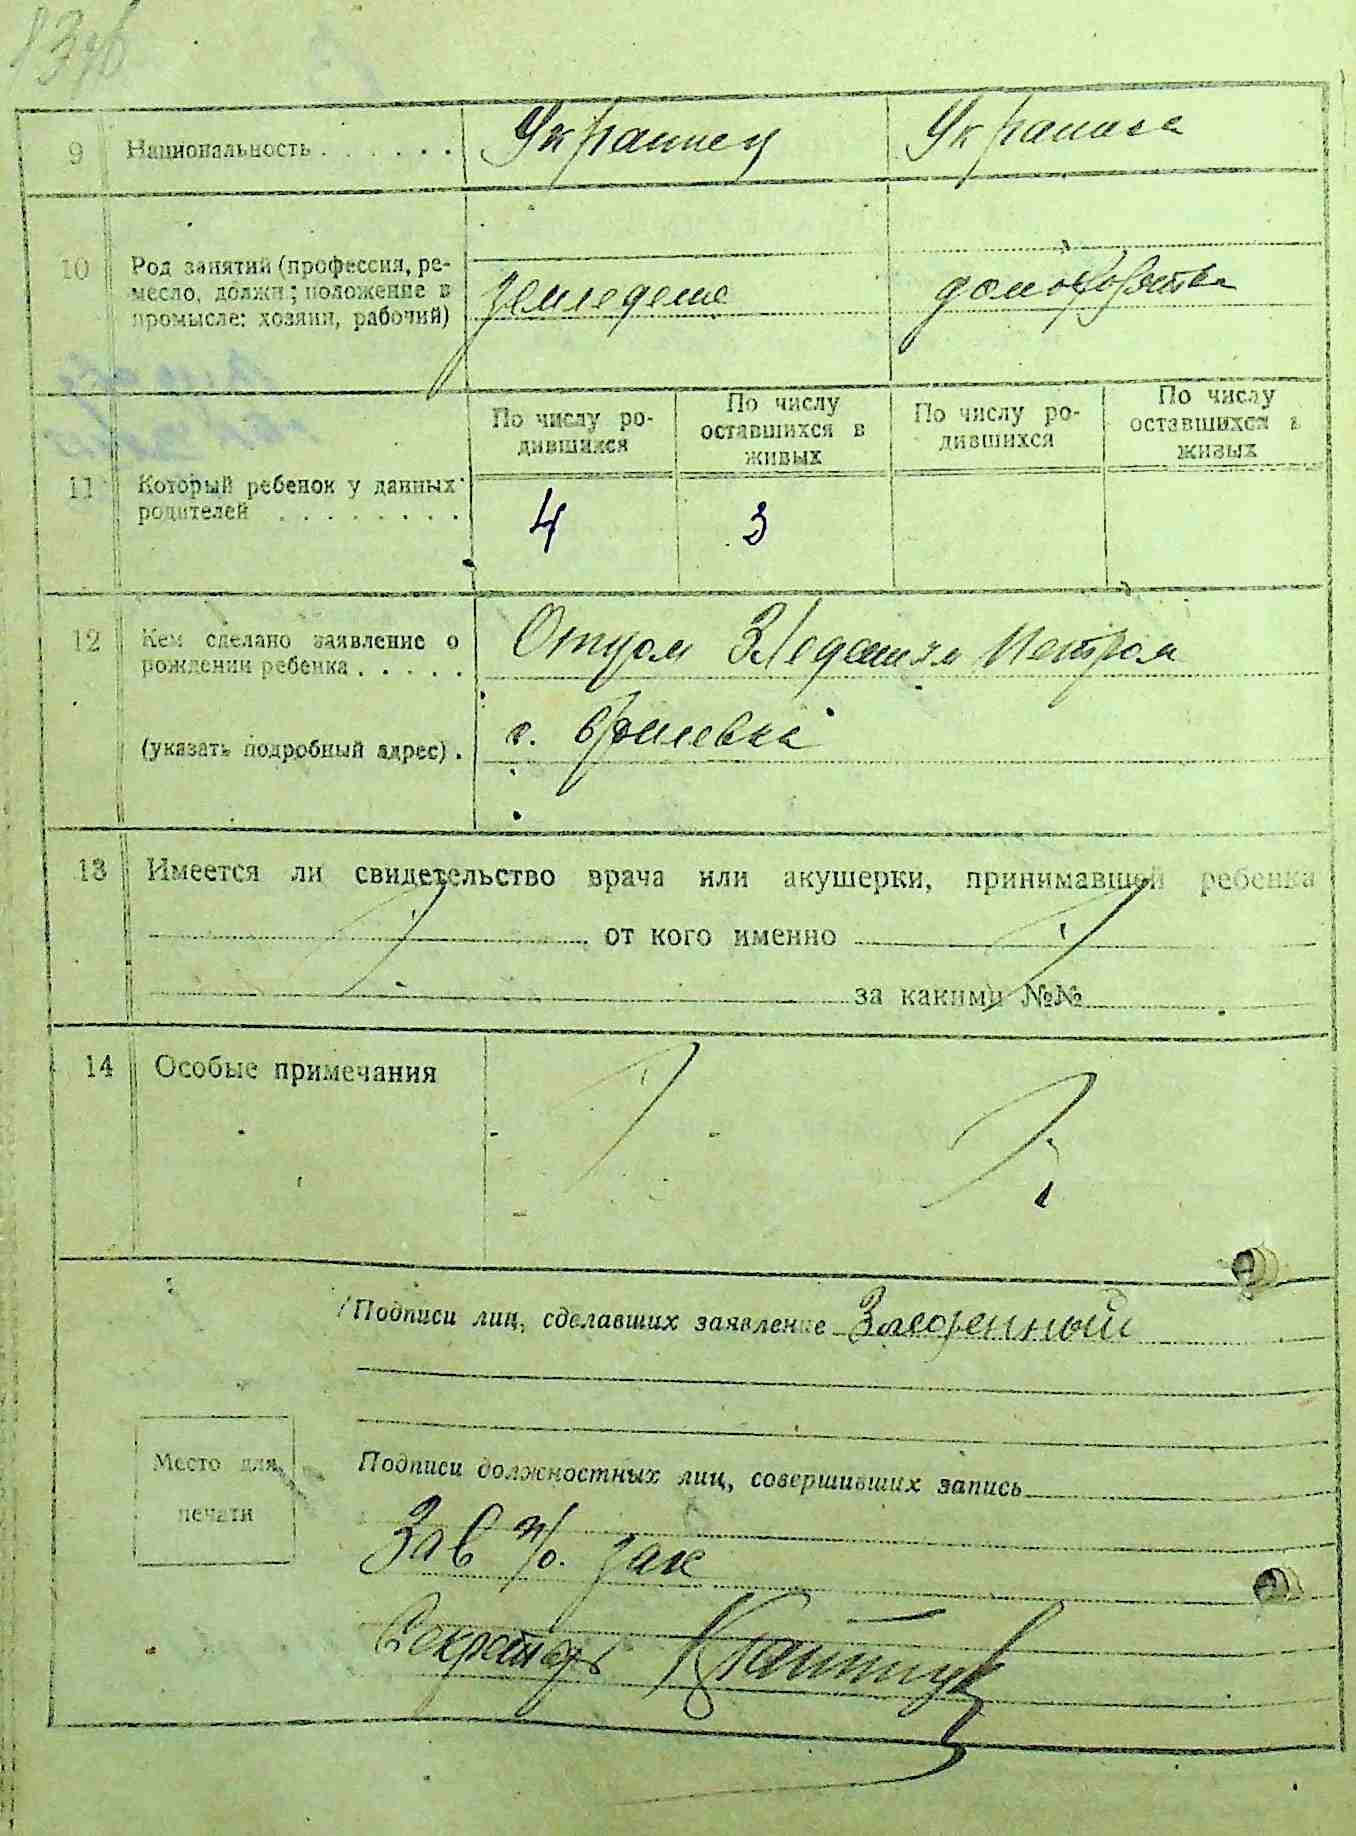 9 Национальность . . . . . . . Украинец Украинка
10 Род занятий (профессия, ре-
месло, должн; положение в
промысле: хозяин, рабочий)
земледелие домохозяйка
По числу ро-
дившихся
По числу
оставшихся в
живых
По числу ро-
дившихся
По числу
оставшихся в
живых
11 Который ребенок у данных
родителей . . . . . . . .
4 3
12 Кем сделано заявление о
рождении ребенка . . . . .
Отцом Петром
(указать подробный адрес) .
13 Имеется ли свидетельство врача или акушерки, принимавшей ребенка
от кого именно
за какими №№
14 Особые примечания
Подписи лиц, сделавших заявление
Место для
печати
Подписи должностных лиц, совершивших запись
Зав
Секретарь